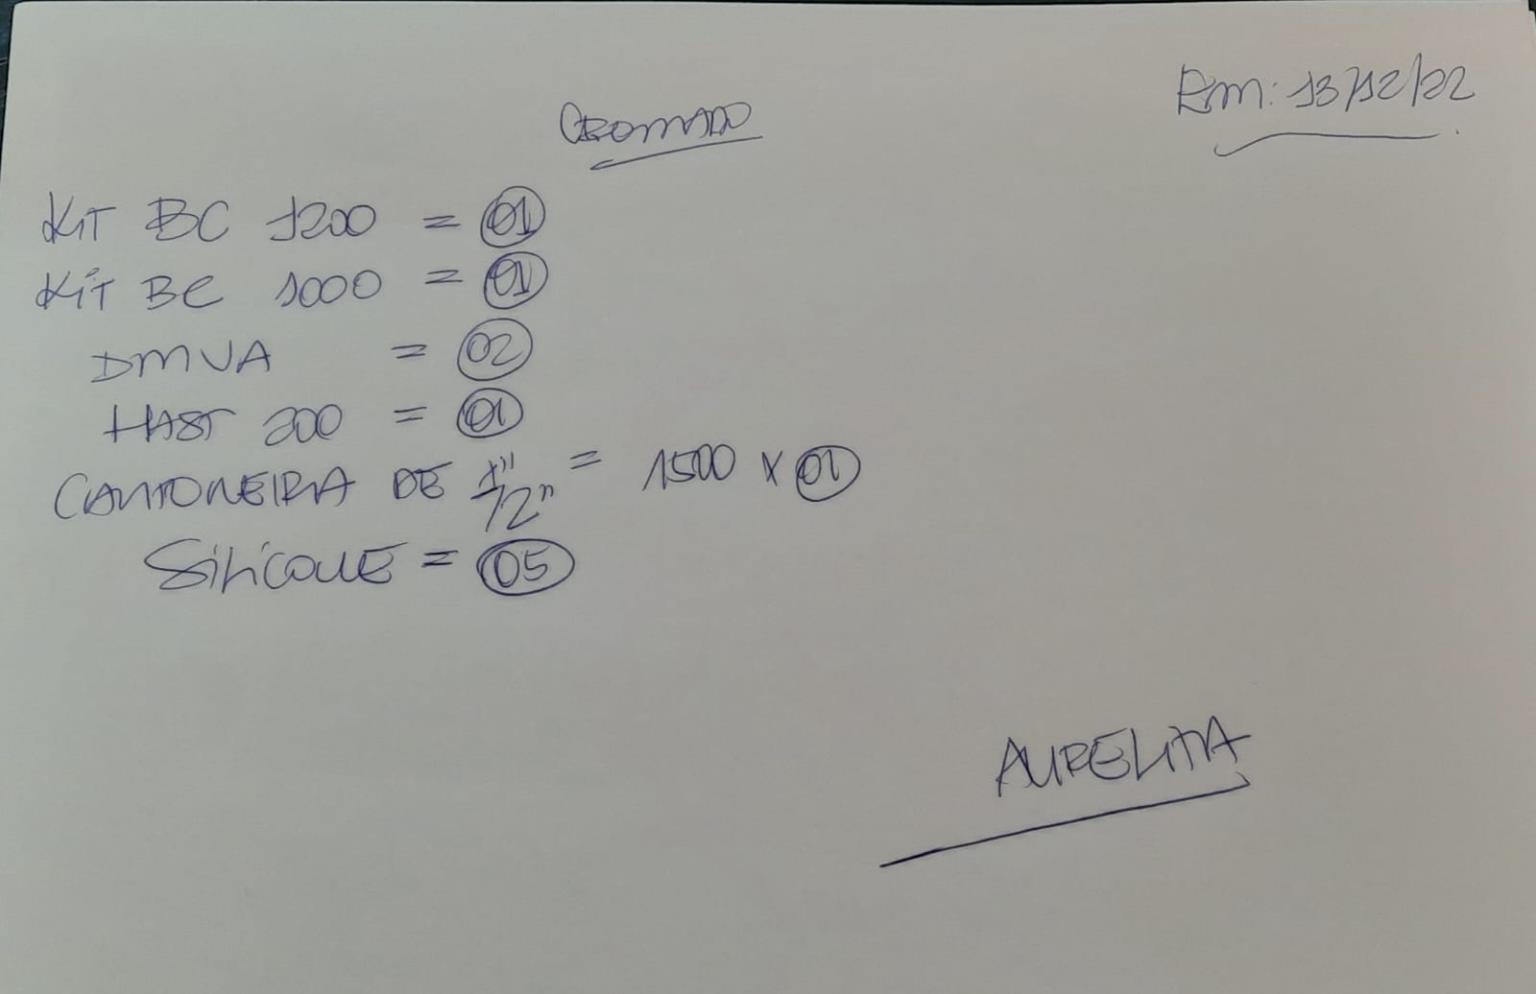 Em: 13/12/22
CROMADO
KIT BC 1200 = 01
KIT BC 1000 = 01
DMUA = 02
HAST 200 = 01
CANTONEIRA DE 1"/2" = 1500 x 01
SILICONE = 05
AURELITA